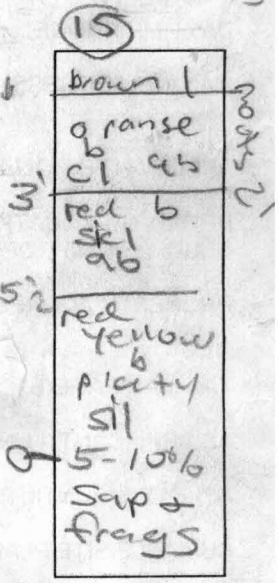 15
brown l
1
orange
b
cl ab
3'
red b
sicl
ab
5½
red
yellow
b
platy
sil
5-10%
Sap &
frags